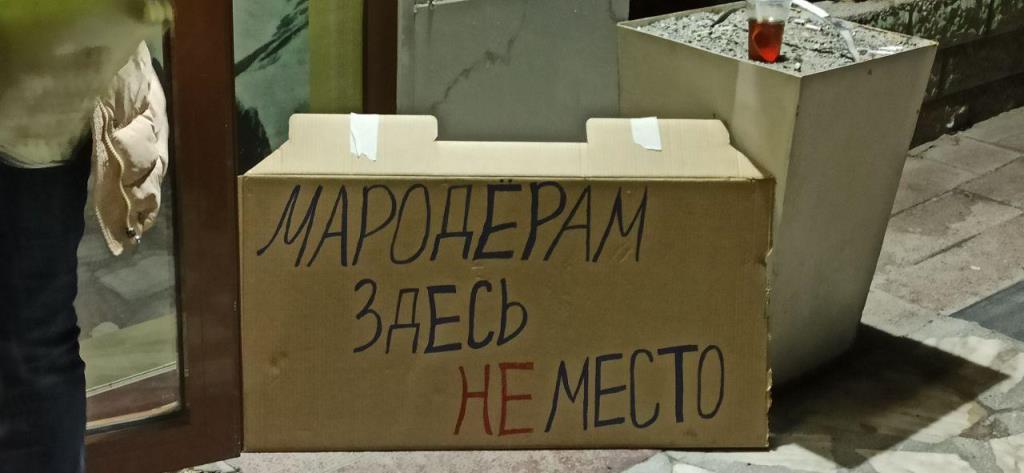 МАРОДЁРАМ
ЗДЕСЬ
НЕ МЕСТО